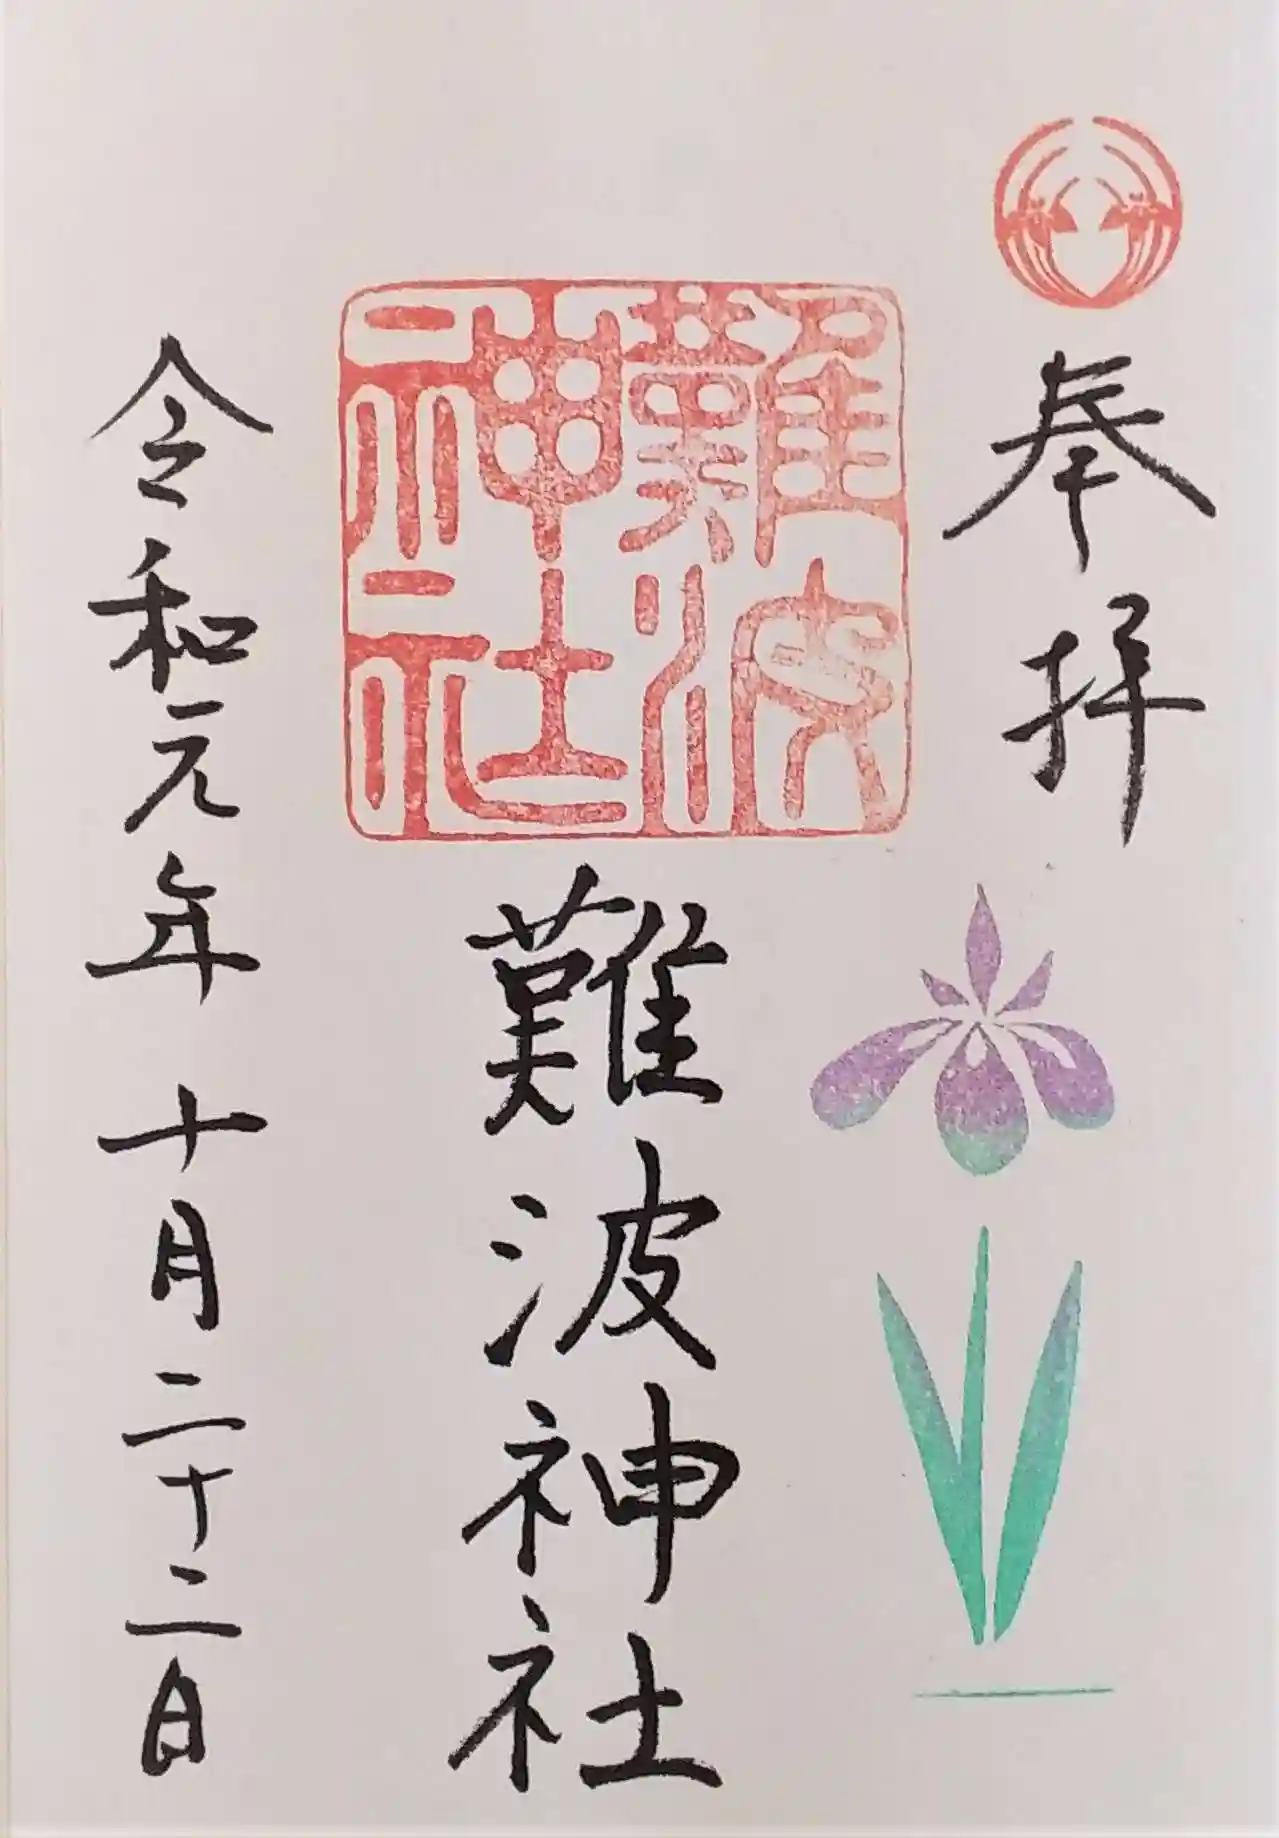 奉拝
難波神社
難波神社
令和元年十月二十二日